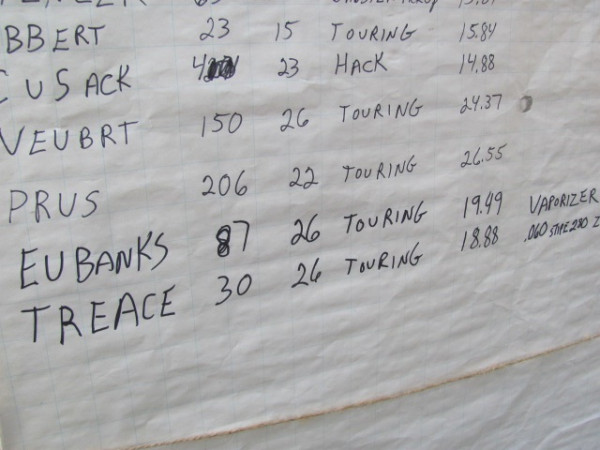 BBERT 23 15 TOURING 15.84
CUSACK 4 23 HACK 14.88
VEUBRT 150 26 TOURING 24.37
PRUS 206 22 TOURING 26.55
EUBANKS 87 26 TOURING 19.49 VAPORIZER
TREACE 30 26 TOURING 18.88 .060